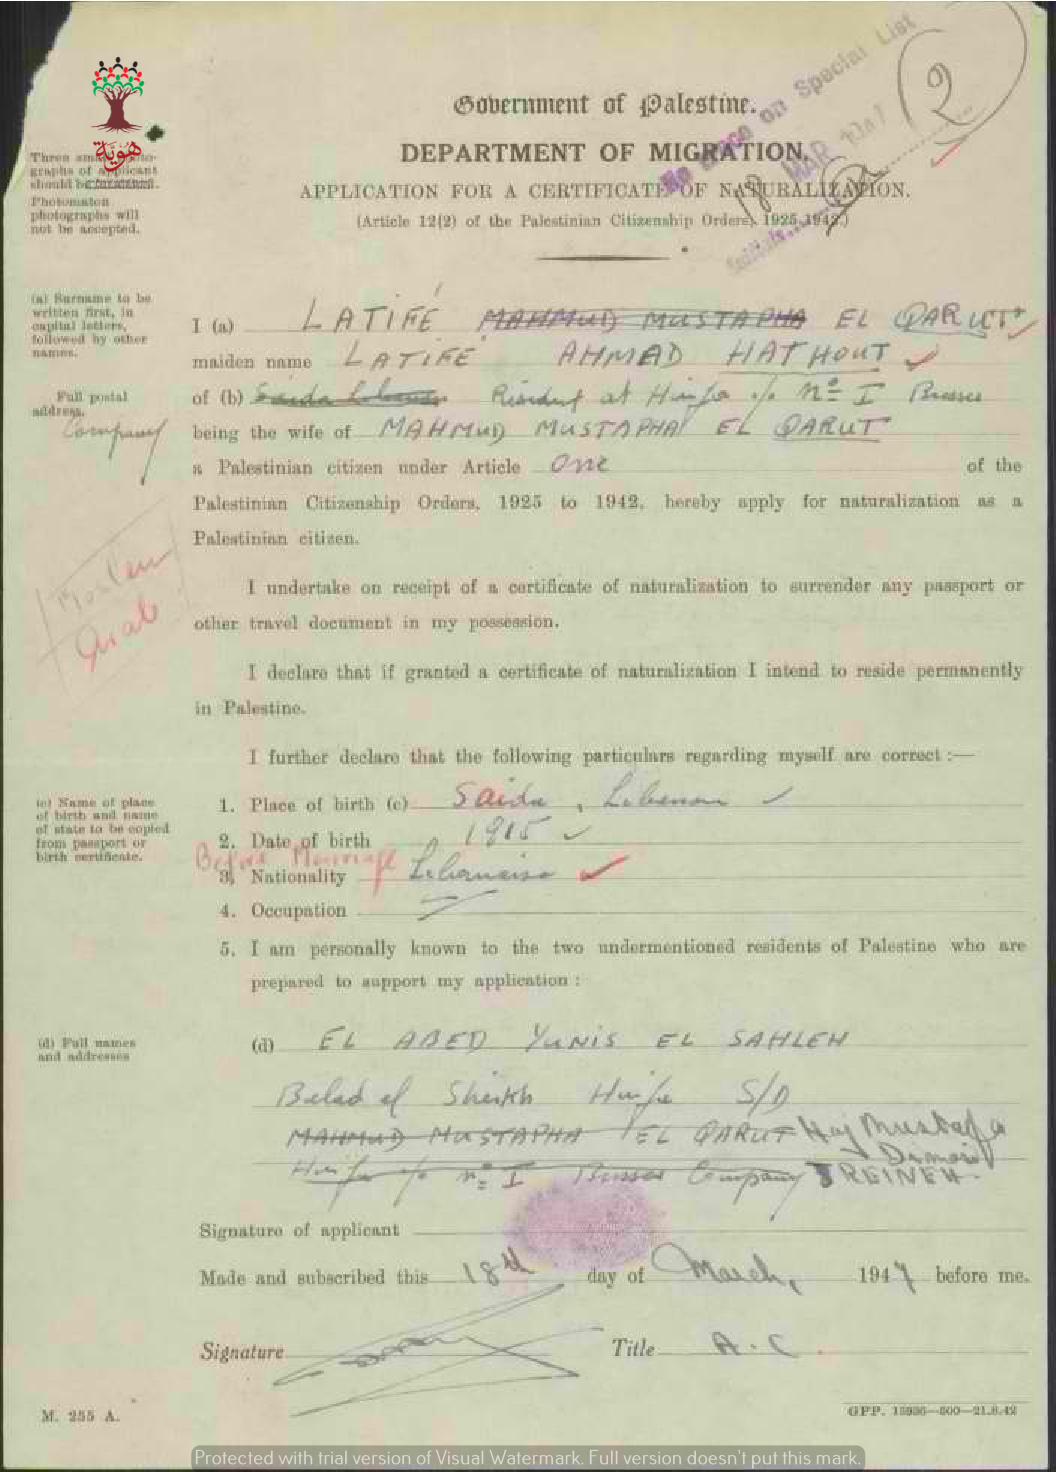 هوية
No Trace on Special List
MAR 1947
18
2
Government of Palestine.
DEPARTMENT OF MIGRATION
APPLICATION FOR A CERTIFICATE OF NATURALIZATION.
(Article 12(2) of the Palestinian Citizenship Orders, 1925-1942.)
Three small photographs of applicant should be
Photomaton photographs will not be accepted.
(a) Surname to be written first, in capital letters, followed by other names.
I (a) LATIFÉ MAHMUD MUSTAPHA EL QARUT
maiden name LATIFÉ AHMAD HATHOUT
Full postal address.
of (b) Saida Resident at Haifa c/o Nº I Busses
Company
being the wife of MAHMUD MUSTAPHA EL QARUT
a Palestinian citizen under Article One of the
Palestinian Citizenship Orders, 1925 to 1942, hereby apply for naturalization as a
Palestinian citizen.
Moslem
Arab
I undertake on receipt of a certificate of naturalization to surrender any passport or
other travel document in my possession.
I declare that if granted a certificate of naturalization I intend to reside permanently
in Palestine.
I further declare that the following particulars regarding myself are correct :—
(c) Name of place of birth and name of state to be copied from passport or birth certificate.
1. Place of birth (c) Saida, Lebanon
2. Date of birth 1915
Before Marriage
3. Nationality Libanaise
4. Occupation
5. I am personally known to the two undermentioned residents of Palestine who are
prepared to support my application :
(d) Full names and addresses
(d) EL ABED YUNIS EL SAHLEH
Balad el Sheikh Haifa S/D
MAHMUD MUSTAPHA EL QARUT Haj Mustafa
Haifa c/o nº I Busses Company REINEH.
Signature of applicant
Made and subscribed this 18th day of March, 1947 before me.
Signature Title A.C.
M. 255 A.
GPP. 15936—500—21.8.42
Protected with trial version of Visual Watermark. Full version doesn't put this mark.